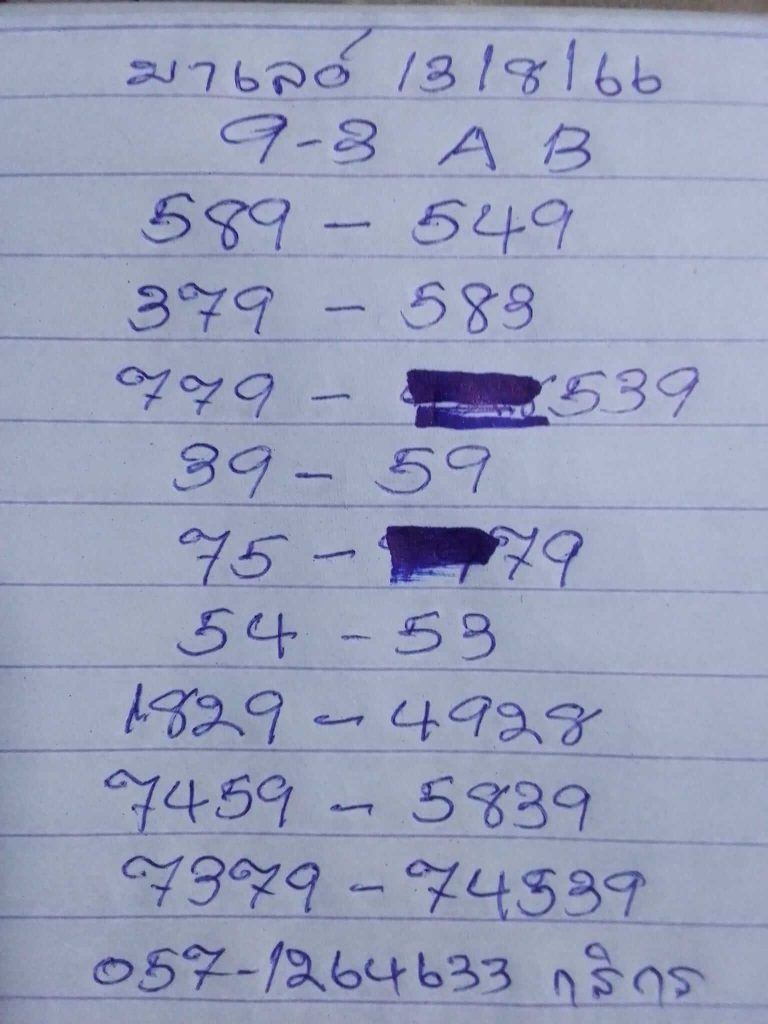 มาเลย์ 13/8/66
9-3 A B
589 - 549
379 - 583
779 - 539
39 - 59
75 - 79
54 - 53
1829 - 4928
7459 - 5839
7379 - 74539
057-1264633 กสิกร